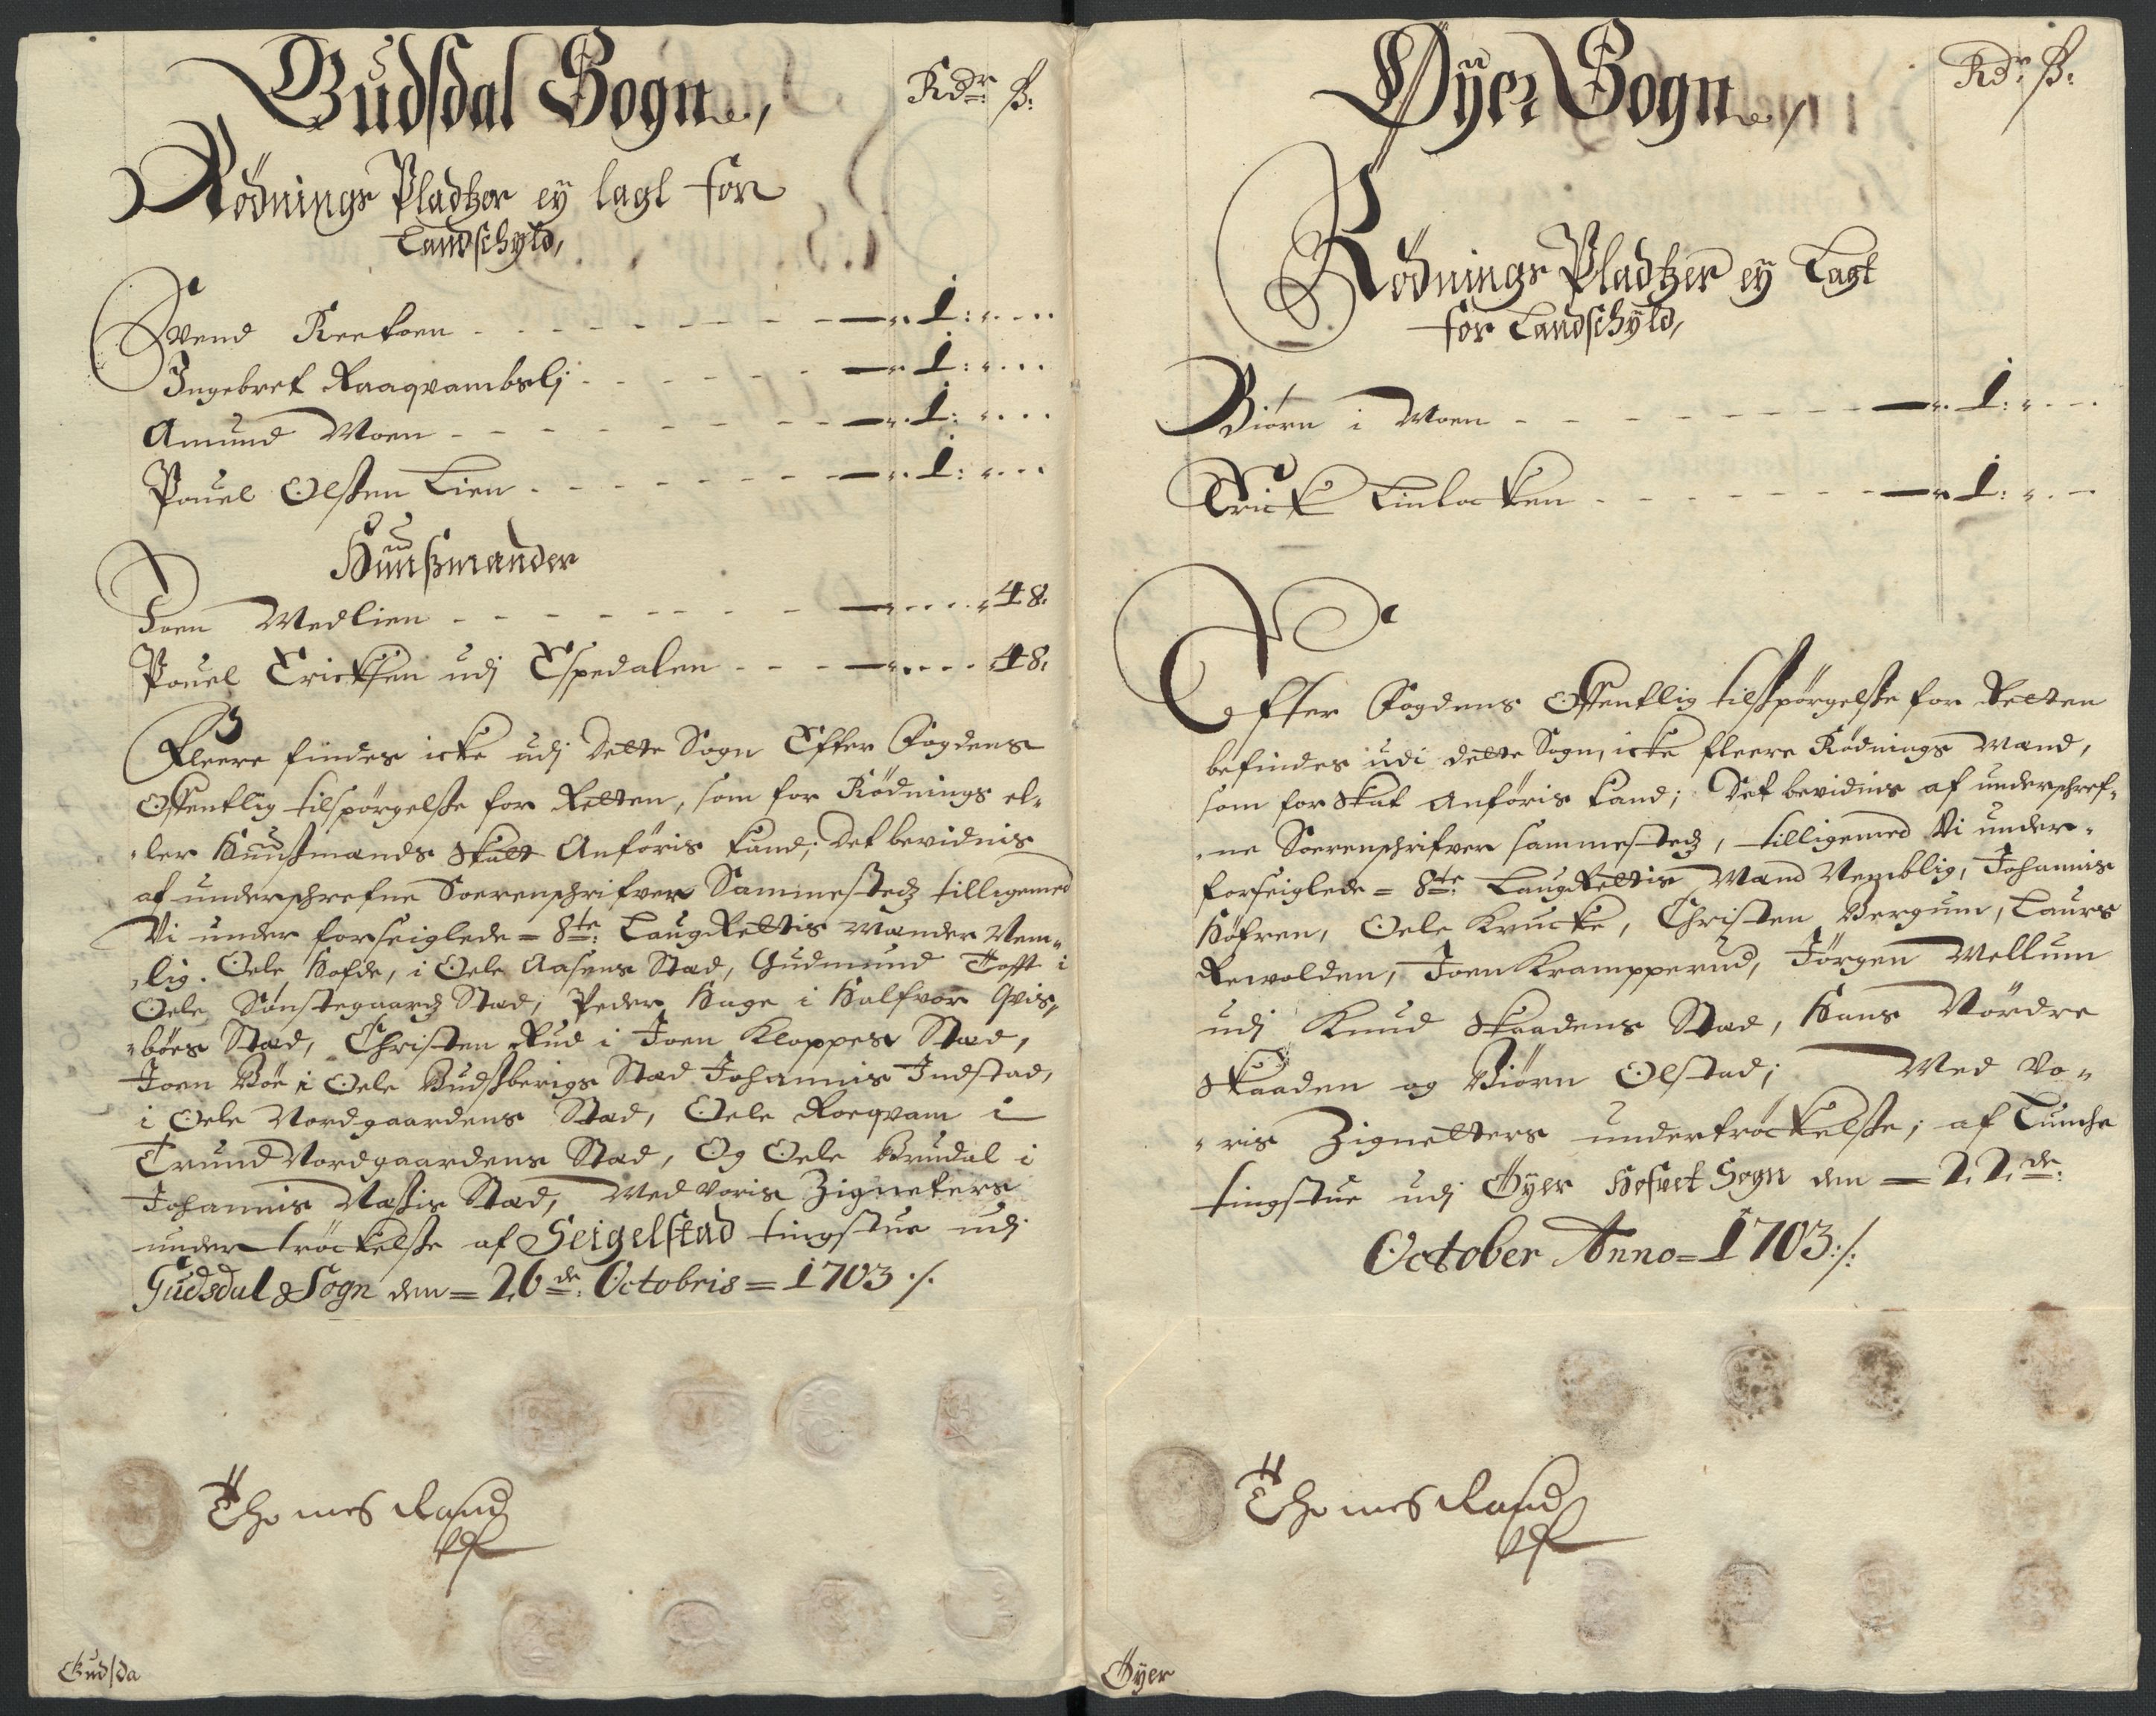 Gudsdal Sogn,
Rdr ß:
Rödnings Pladtzer ey lagt for
Landschyld,
Svend Reekoen - 1:
Ingebret Raaqvambslj - 1:
Amund Moen - 1:
Pouel Olsen Lien - 1:
Huusmænder
Joen Medlien - 48.
Pouel Ericksen udj Espedalen - 48.
Fleere findes icke udj dette Sogn Efter Fogdens
Offentlig tilspörgelse for Retten, som for Rödnings el„
„ler Huusmands Skatt Anföris kand; Det bevidnis
af underschrefne Sorenschrifver Sammestedz tilligemed
Vi under forseiglede = 8te: LaugRettis Mænder Nem„
„lig. Oele Hofde, i Oele Aasens Stæd, Gudmund Tofft i
Oele Sönstegaardz Stæd, Peder Hage i Halfvor Qvis„
„böes Stæd, Christen Rud i Joen Kloppes Stæd,
Joen Böe i Oele Budsbergs Stæd Johannis Indstad,
i Oele Nordgaardens Stæd, Oele Roeqvam i
Trund Nordgaardens Stæd, Og Oele Brudal i
Johannis Næsis Stæd, Med voris Zigneters
undertröckelse af Seigelstad tingstue udj
Gudsdals Sogn den = 26de: Octobris = 1703 ./.
Thomes Rasd
Gudsda
Öyer Sogn,
Rdr ß:
Rödnings Pladtzer ey Lagt
for Landschyld,
Biörn i Moen - 1:
Erick Linlocken - 1:
Efter Fogdens Offentlig tilspörgelse for Retten
befindes udi dette Sogn, icke fleere Rödnings Mænd,
som for Skat Anföris kand; Det bevidnis af underschref„
„ne Sorenschrifver sammestedz, tilligemed Vi under„
forseiglede = 8te: LaugRettis Mænd Nemblig, Johannis
Höfren, Oele Krucke, Christen Bergum, Laurs
Rewolden, Joen Kramperud, Jörgen Mellum
udj Knud Skaadens Stæd, Hans Nördre
Skaaden og Biörn Olstad; Med vo„
„ris Zignetters undertröckelse; af Tunche
tingstue udj Öyer Hofvet Sogn den = 22de:
October Anno = 1703 ./.
Thomes Rasd
Öyer